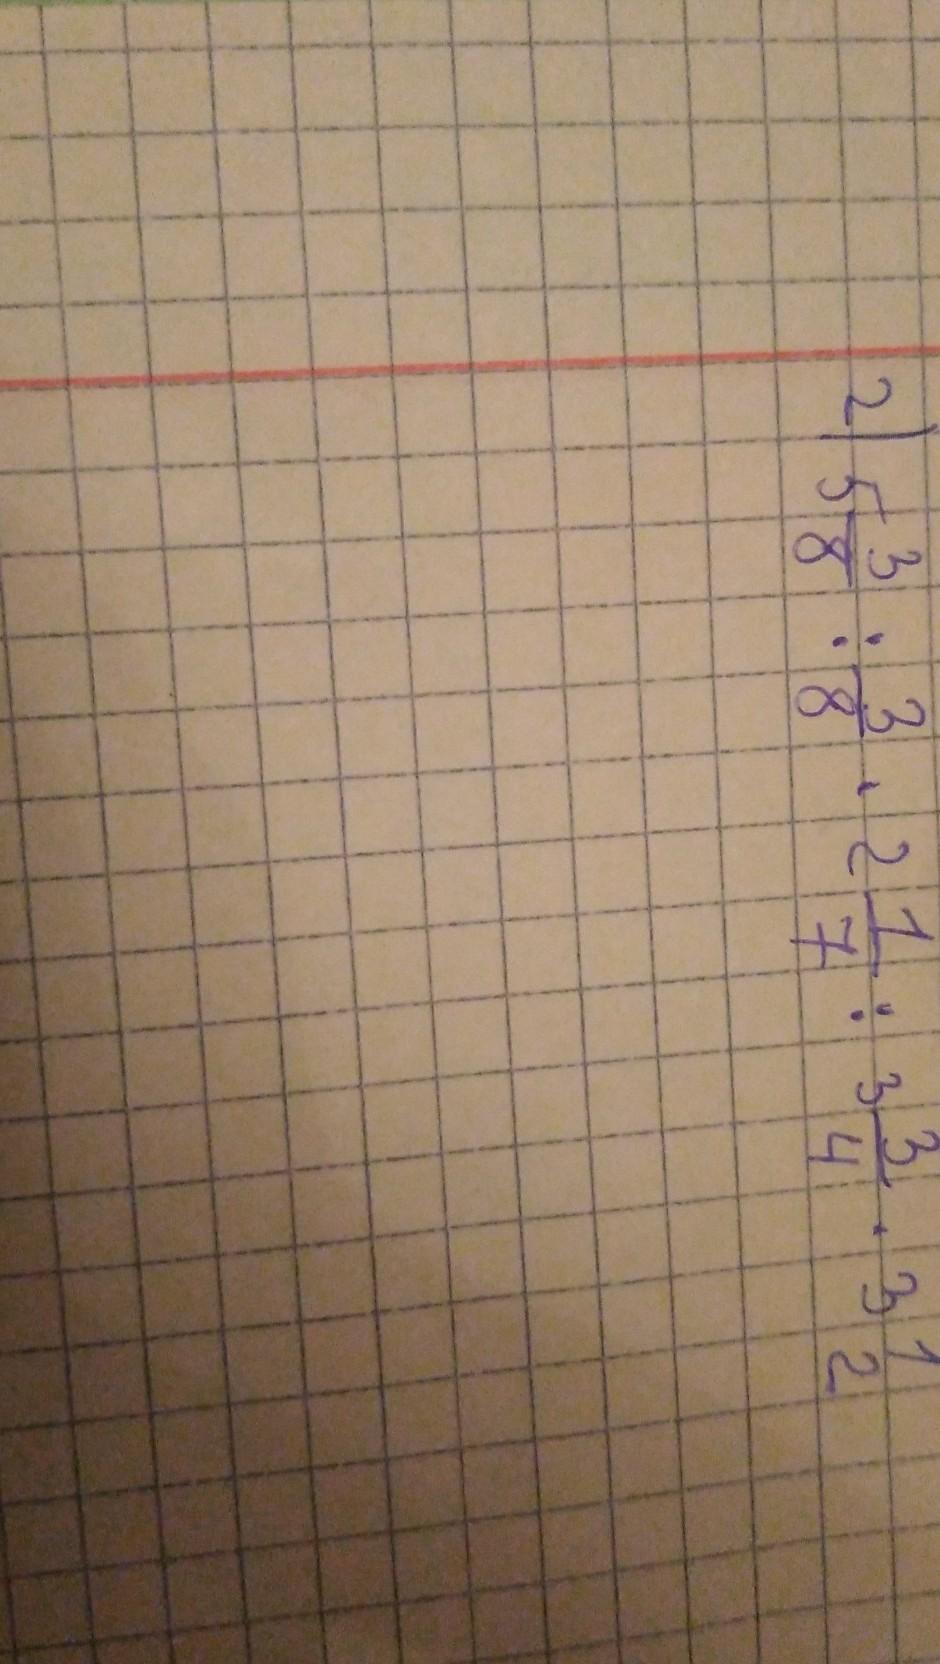 2) 5 3/8 : 3/8 · 2 1/7 : 3 3/4 · 3 1/2